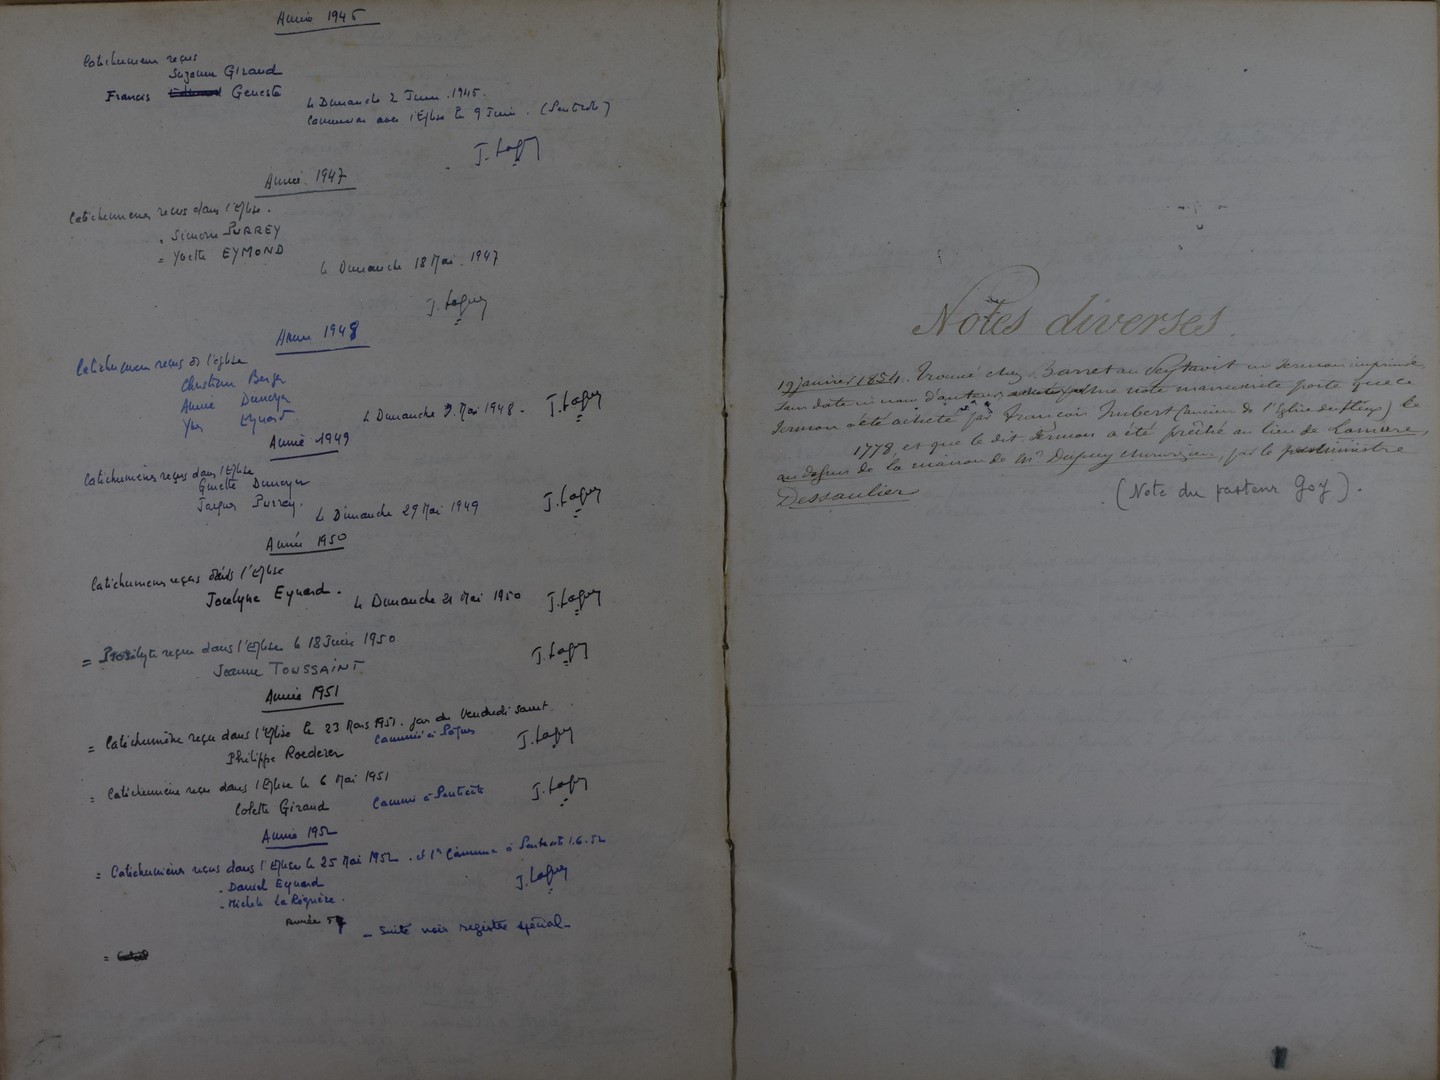 Année 1945
Catéchumènes reçus
Suzanne Giraud
Francis Geneste
le Dimanche 2 Juin 1945.
Communion avec l'Eglise le 9 Juin. (Pentecôte)
Année 1947
Catéchumènes reçus dans l'Eglise.
Simone PURREY
Yvette EYMOND
le Dimanche 18 Mai 1947
Année 1948
Catéchumènes reçus ds l'église
Christiane Berger
Annie
Yves Eynard
le Dimanche 9 Mai 1948.
Année 1949
Catéchumènes reçus dans l'Eglise
Ginette
Jacques Purrey.
le Dimanche 29 Mai 1949
Année 1950
Catéchumènes reçus dans l'Eglise
Jocelyne Eynard.
le Dimanche 21 Mai 1950
= Prosélyte reçue dans l'Eglise le 18 Juin 1950
Jeanne TOUSSAINT
Année 1951
= Catéchumène reçu dans l'Eglise le 23 Mars 1951. jour du Vendredi saint
Philippe Roederer
Communié à Pâques
= Catéchumène reçue dans l'Eglise le 6 Mai 1951
Colette Giraud
Communié à Pentecôte
Année 1952
= Catéchumènes reçus dans l'Eglise le 25 Mai 1952. et 1re Commun. à Pentecôte 1.6.52
- Daniel Eynard
- Michel La Régnère.
Année 57
- Suite voir registre spécial -
Notes diverses
19 janvier 1854. Trouvé chez Barret au un sermon imprimé,
sans date ni nom d'auteur une note manuscrite porte que ce
sermon a été acheté par François Imbert (ancien de l'Eglise) le
1778, et que le dit sermon a été prêché au lieu de Lamare,
au dessus de la maison de Mr Dupuy chirurgien, par le ministre
Dessaulier
(Note du pasteur Goy).